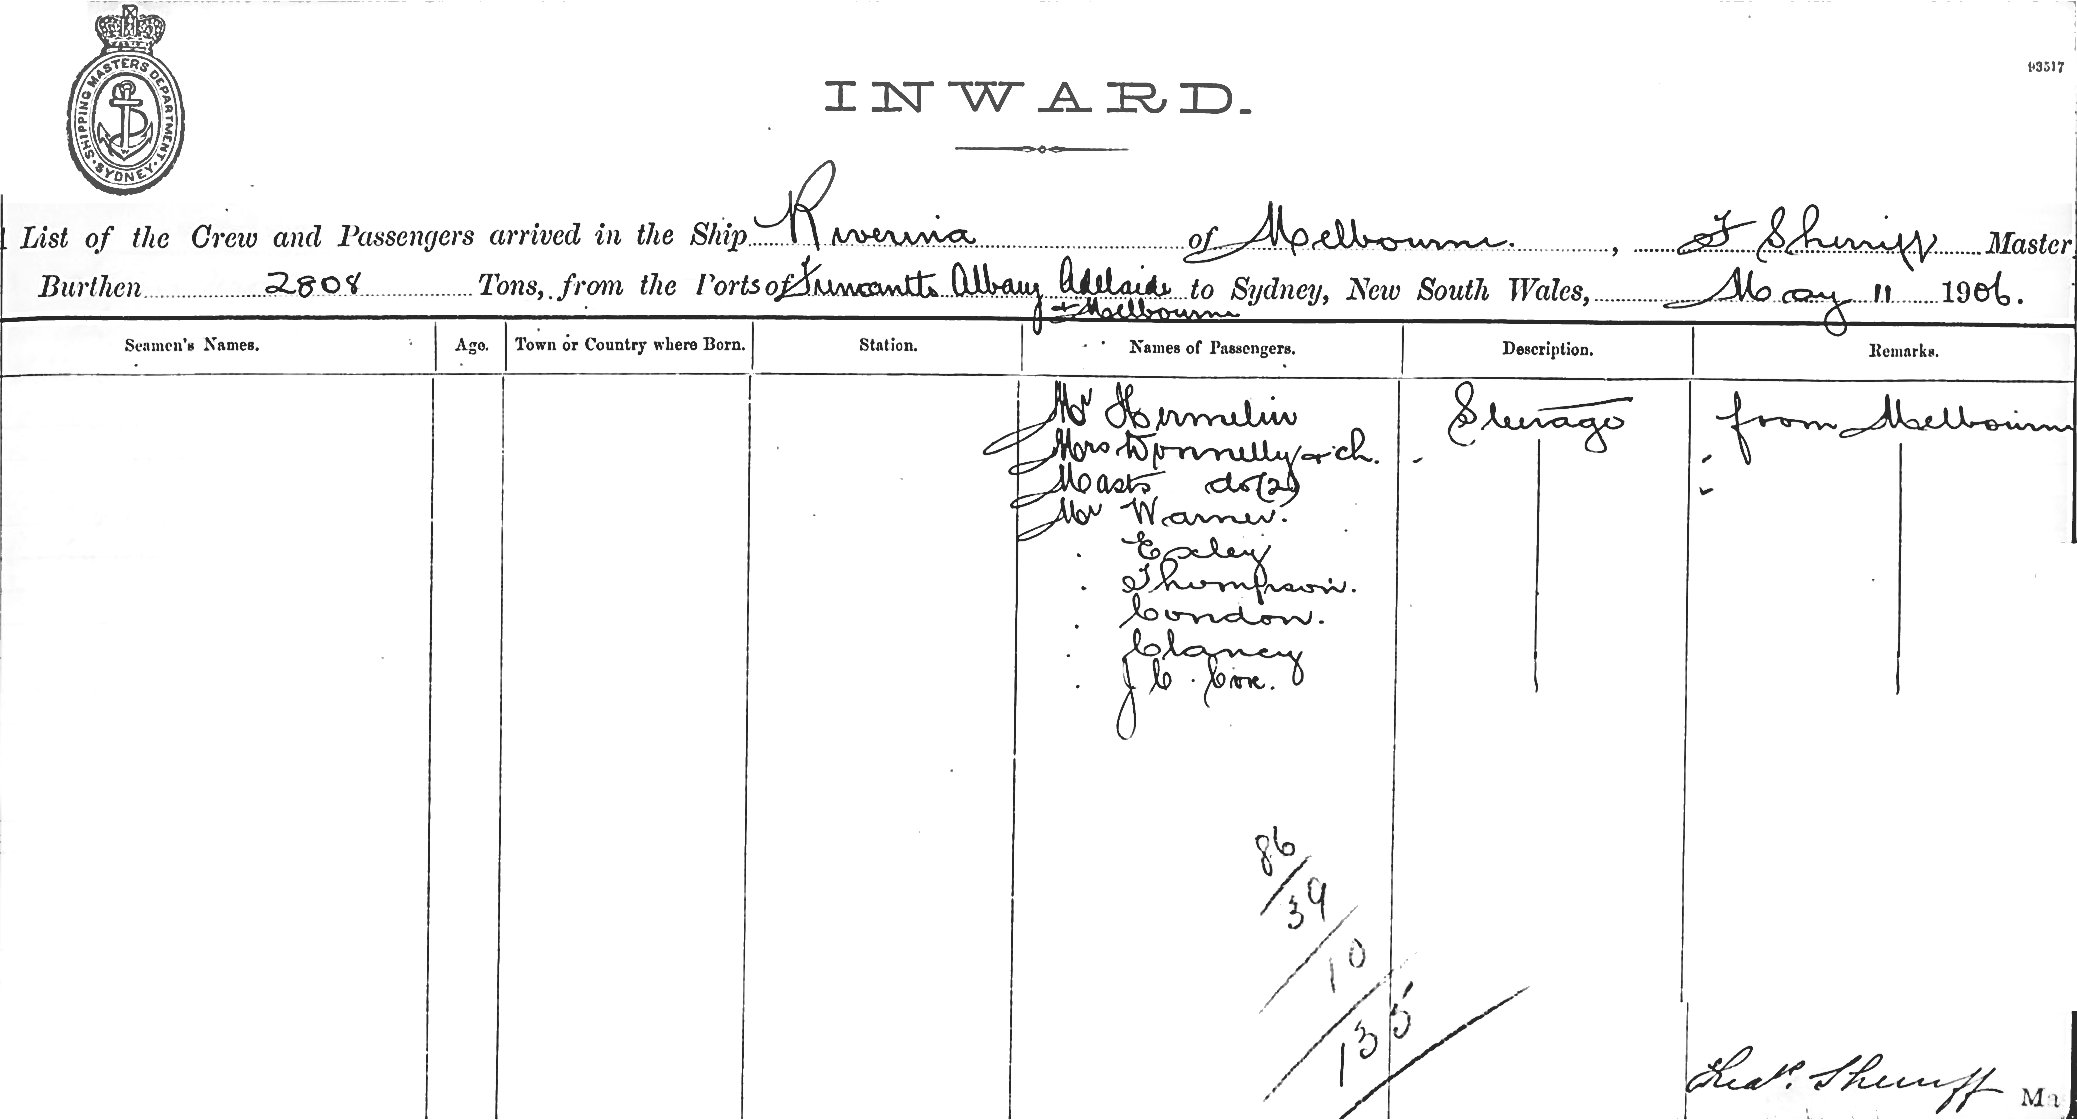 SHIPPING MASTERS DEPARTMENT. SYDNEY.
93517
INWARD.
List of the Crew and Passengers arrived in the Ship Riverina of Melbourne. , F Sherriff Master
Burthen 2808 Tons, from the Ports of Fremantle Albany Adelaide to Sydney, New South Wales, May 11 1906.
& Melbourne
Seamen's Names. Age. Town or Country where Born. Station. Names of Passengers. Description. Remarks.
Mr Hermelin Steerage from Melbourne
Mrs Donnelly & ch.
Mastr do (2)
Mr Warner.
. Exley
. Thompson.
. Condon.
. Clancy
. J C. Cox.
86
39
10
135
Sherriff Ma